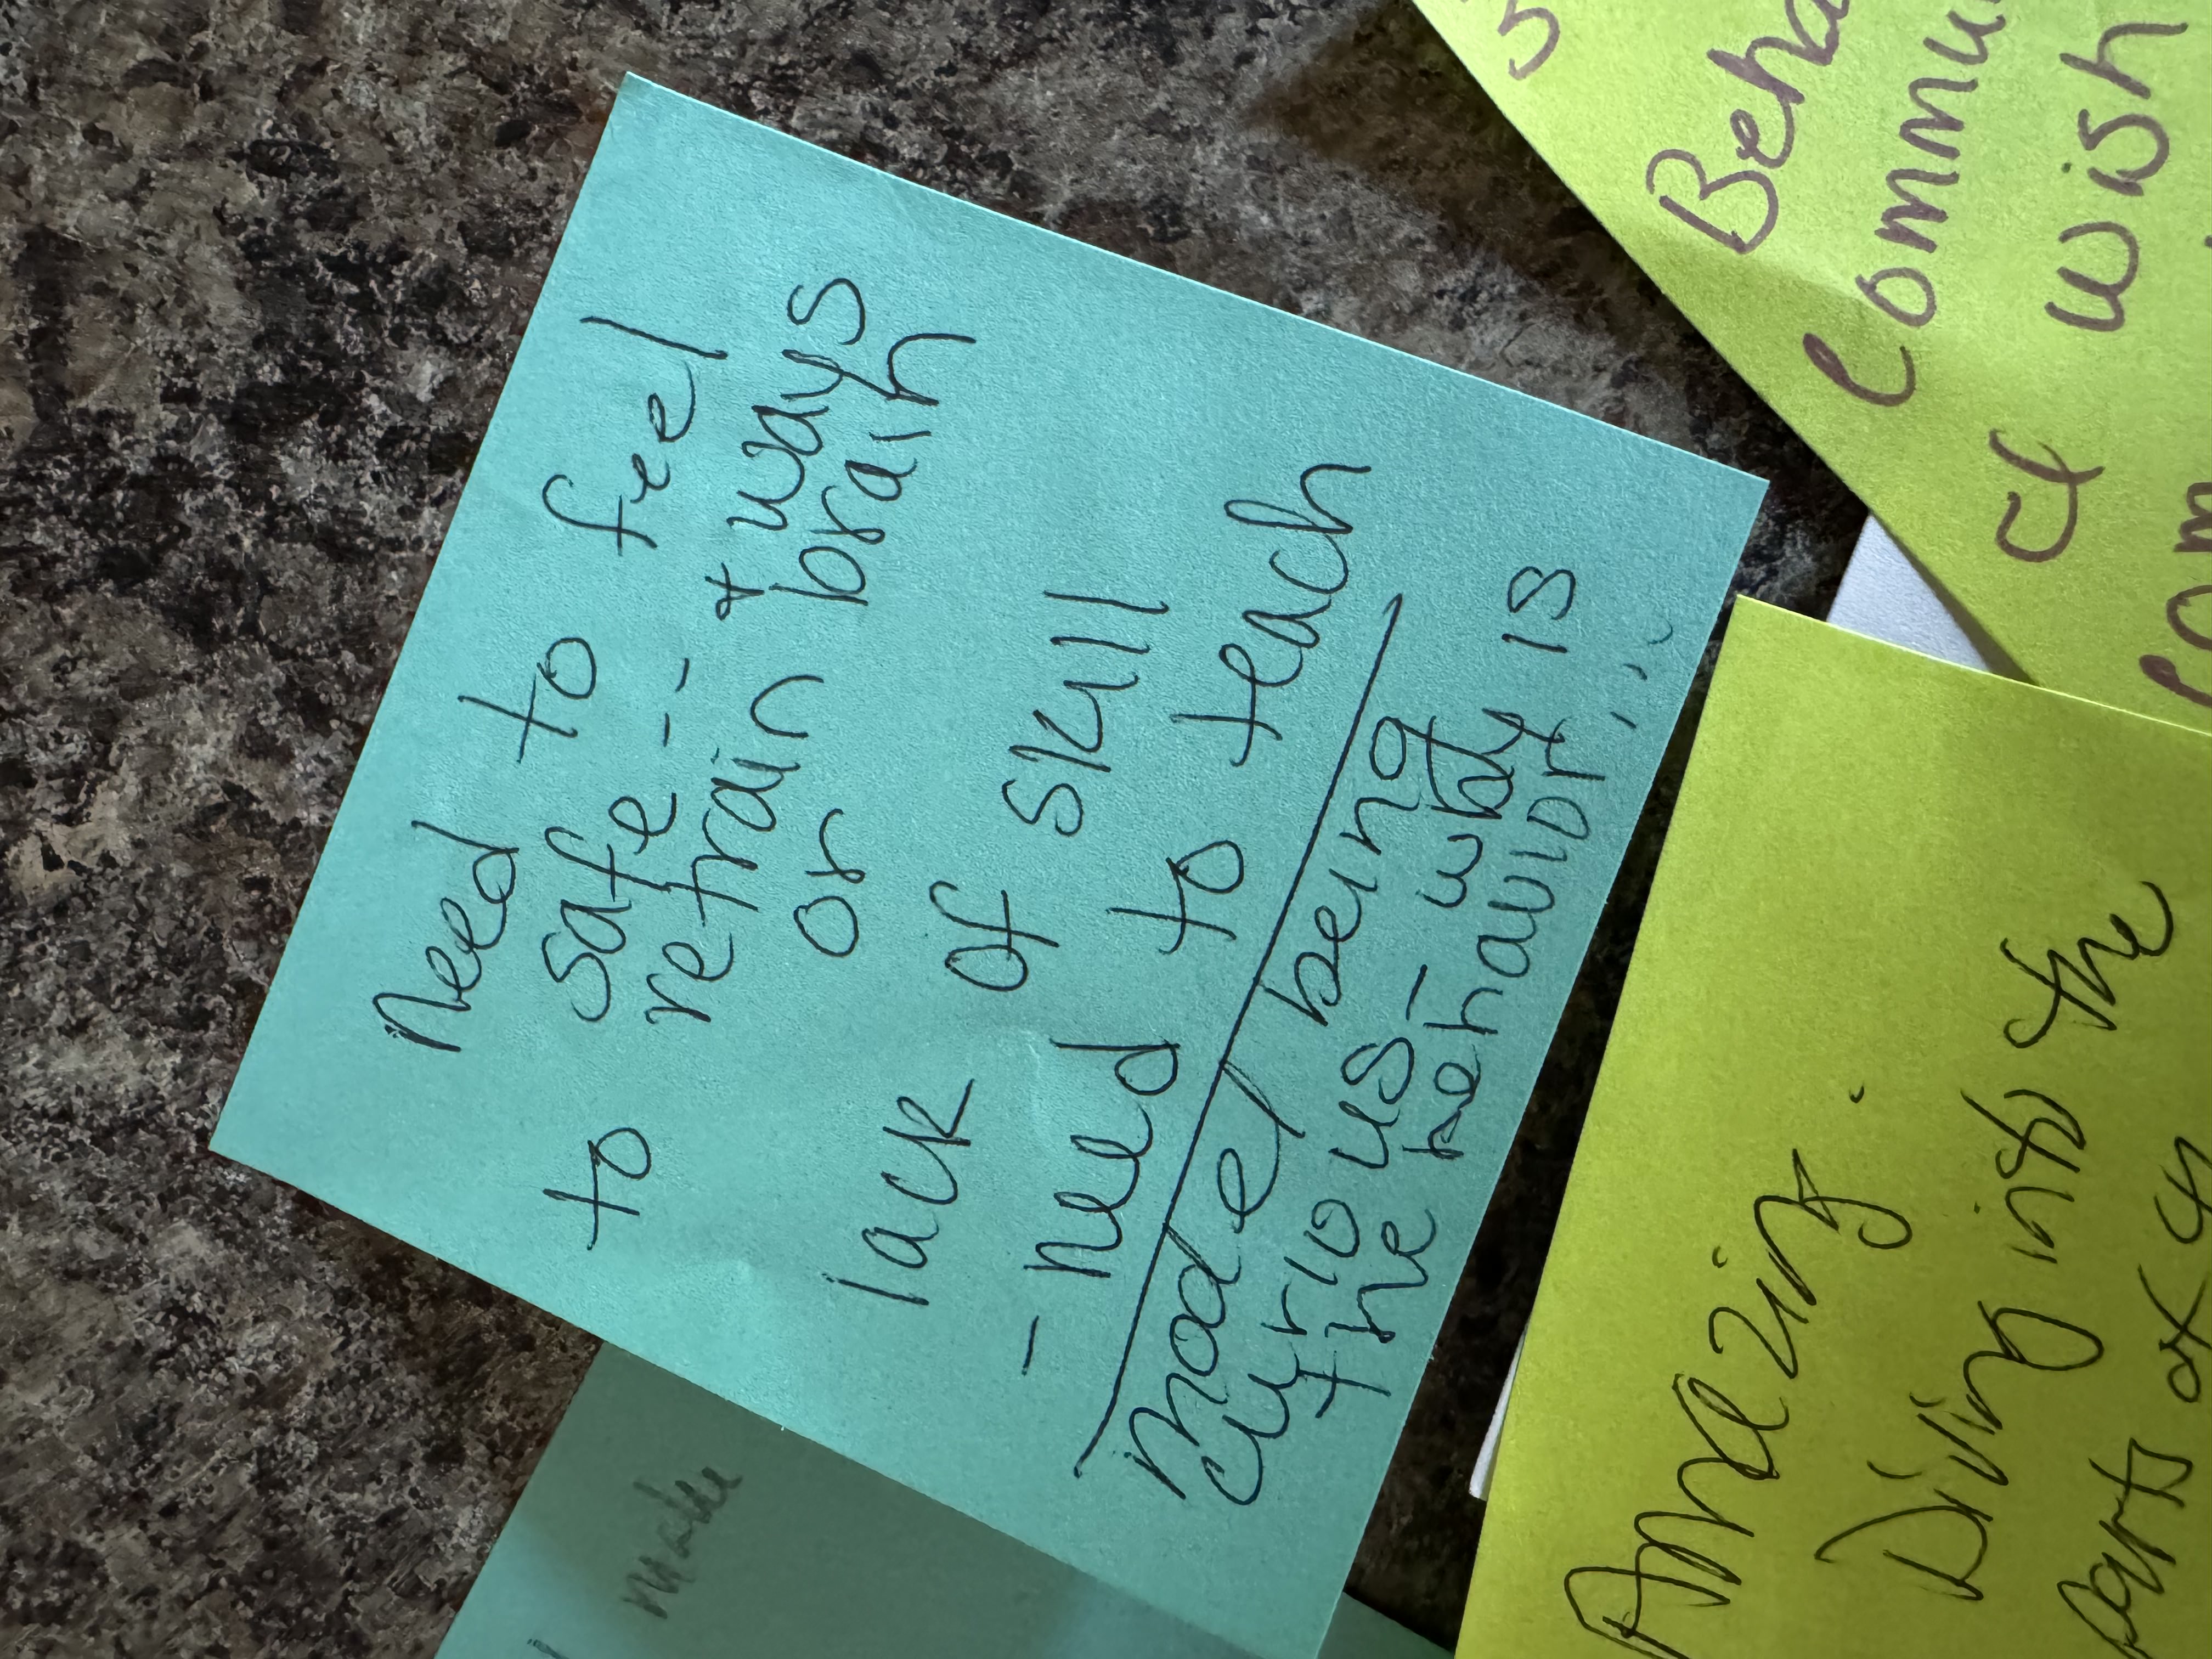 Need to feel
safe -- + ways
to retrain brain
or
lack of skill
- need to teach
Model being
curious - why is
the behavior...
make
Amazing.
Diving into the
parts of
Beha
Commu
I wish
com